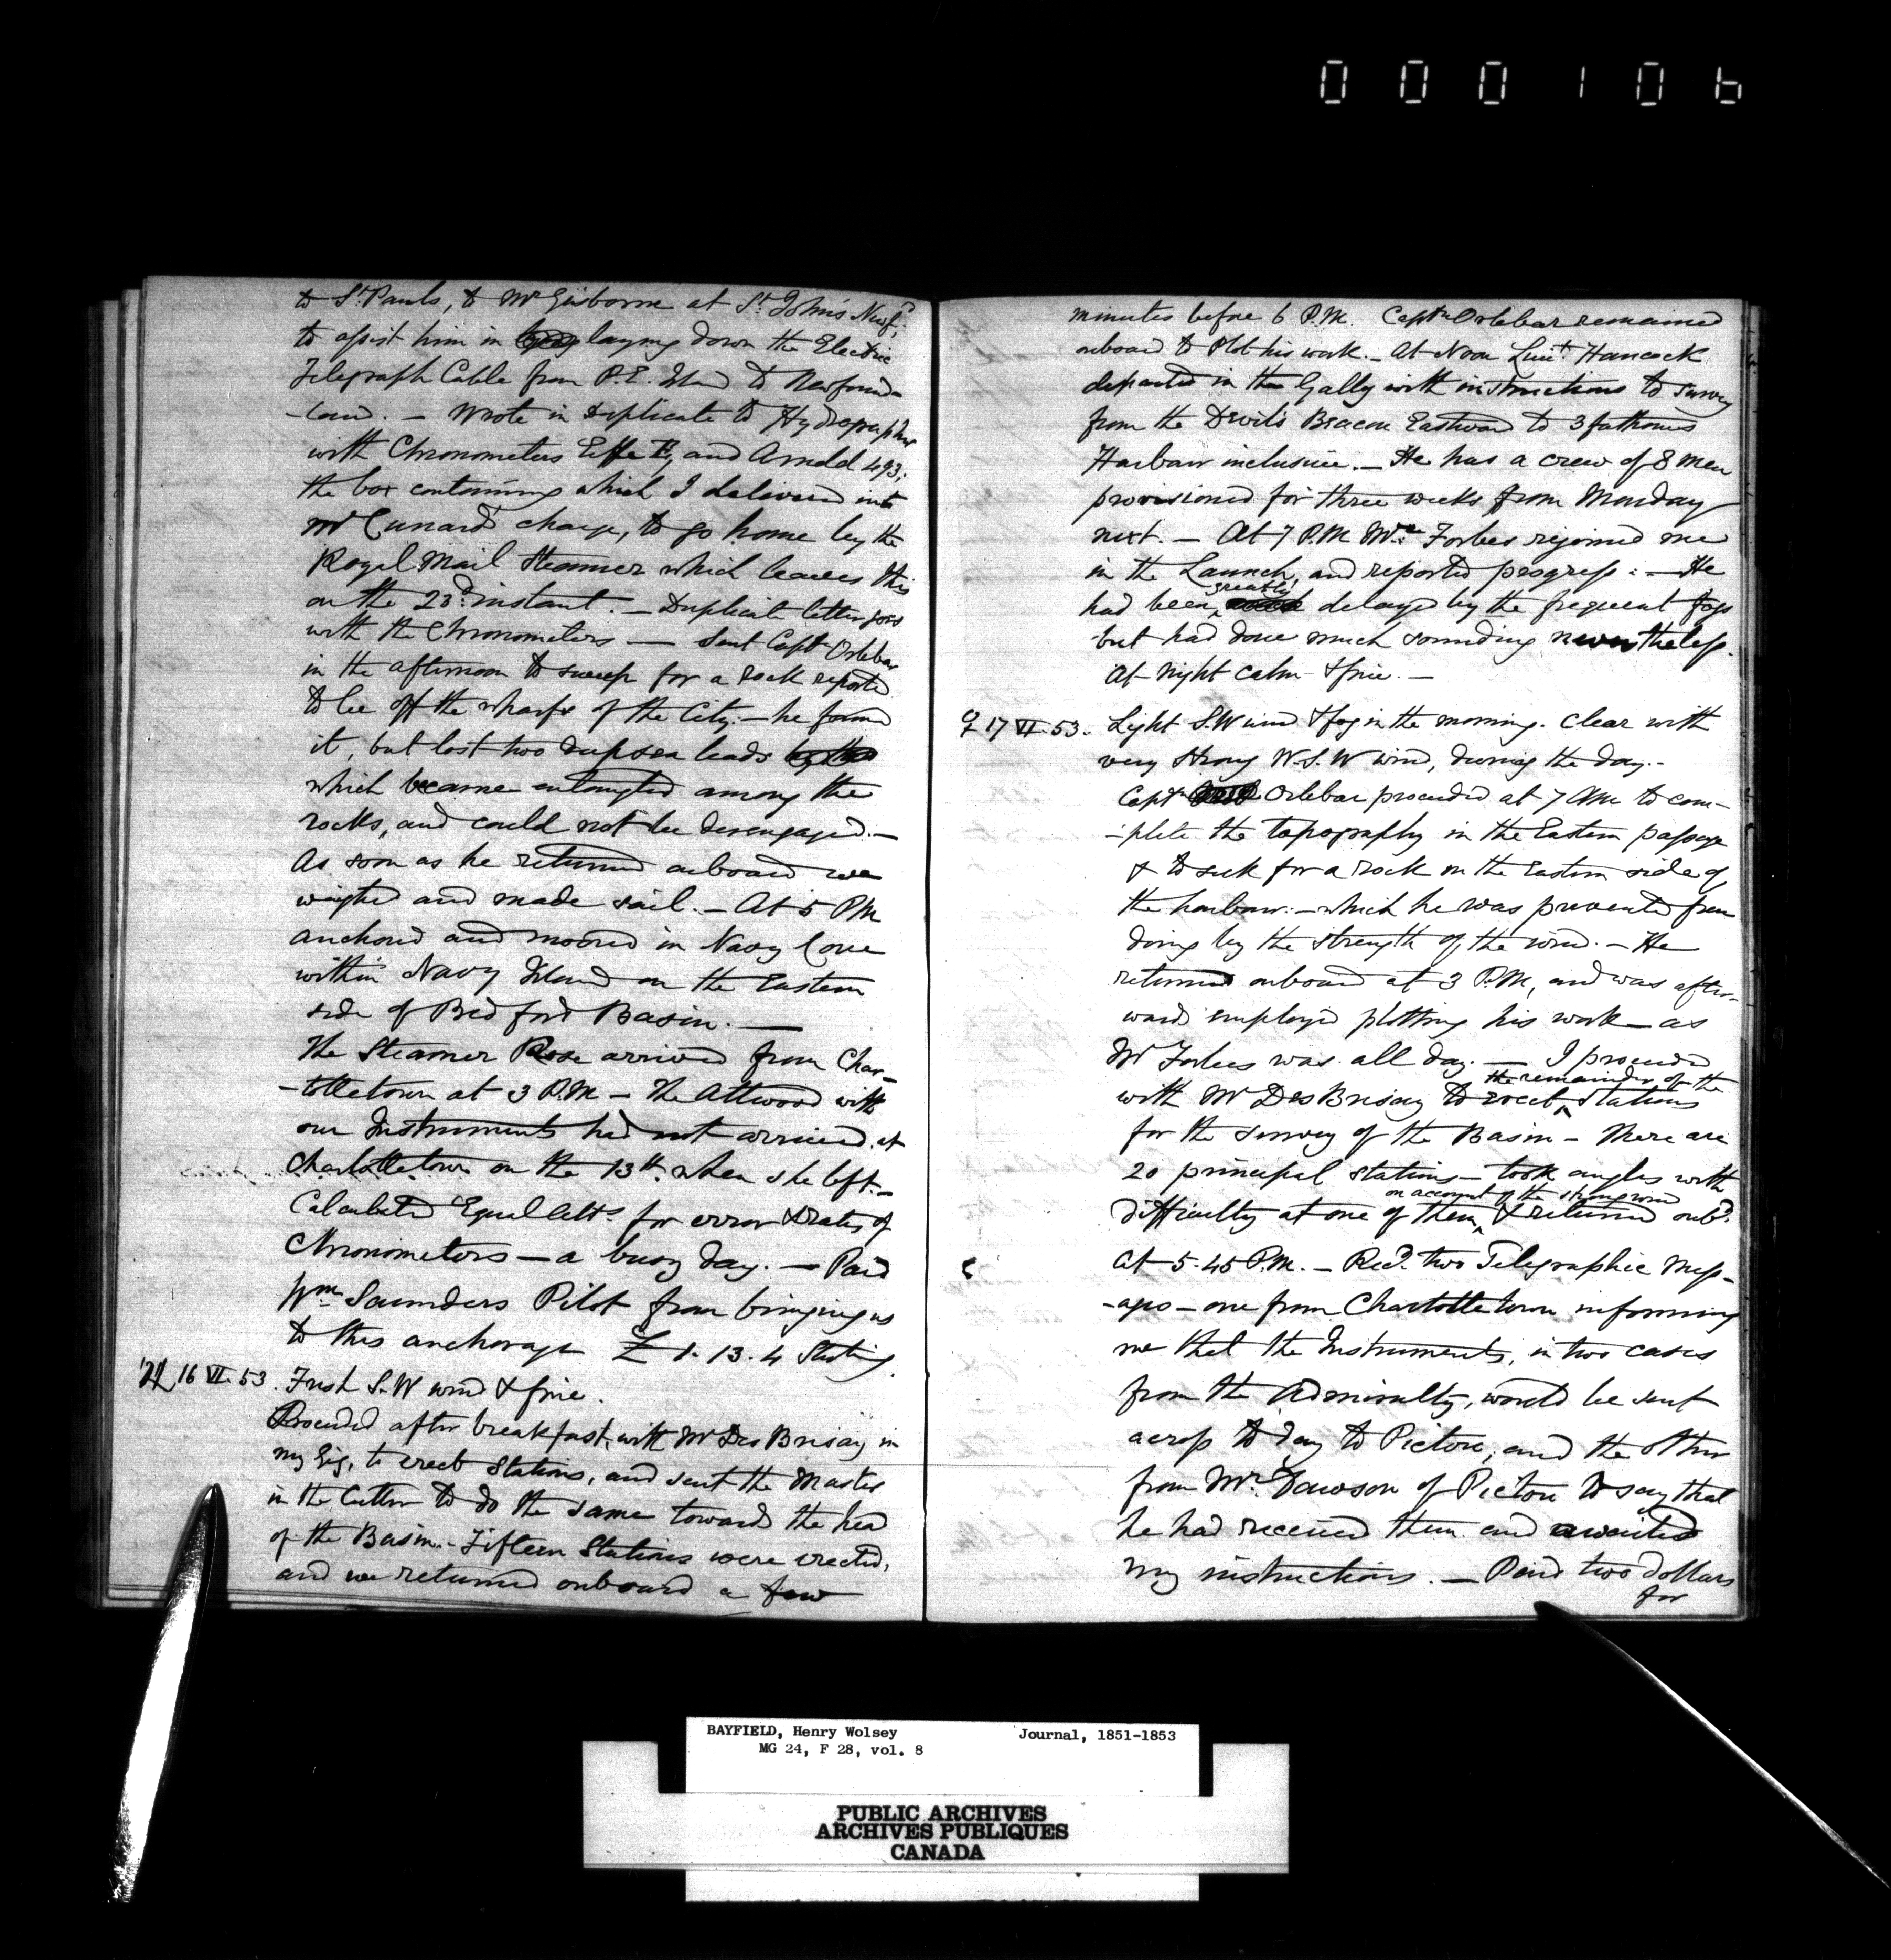 000106
to St. Pauls, to Mr Gisborne at St. John's Newfd;
to assist him in laying down the Electric
Telegraph Cable from P.E. Island to Newfound-
-land. - Wrote in duplicate to Hydrographer
with Chronometers Eiffe and Arnold 493;
the box containing which I delivered into
Mr Cunard's charge, to go home by the
Royal Mail Steamer which leaves this
on the 23d. instant. - Duplicate letter goes
with the Chronometers - Sent Captn Orlebar
in the afternoon to sweep for a rock reported
to be off the wharfs of the City. - he found
it, but lost two deepsea leads
which became entangled among the
rocks, and could not be disengaged. -
As soon as he returned onboard we
weighed and made sail. - At 5 PM
anchored and moored in Navy Cove
within Navy Island on the Eastern
side of Bedford Basin. -
The Steamer Rose arrived from Char-
-lottetown at 3 P.M - The Attwood with
our Instruments had not arrived at
Charlottetown on the 13th. when she left. -
Calculated Equal Alts. for error & rates of
Chronometers - a busy day. - Paid
Wm Saunders Pilot from bringing us
to this anchorage £ 1. 13. 4 Sterling.
♃ 16 VI. 53. Fresh S.W wind & fine.
Proceeded after breakfast, with Mr Des Brisay in
my Gig, to erect Stations, and sent the Master
in the Cutter to do the same towards the head
of the Basin. - Fifteen Stations were erected,
and we returned onboard a few
minutes before 6 P.M. Captn Orlebar remained
onboard to Plot his work. - At Noon Lieut. Hancock
departed in the Gally with instructions to survey
from the Devil's Beacon Eastward to 3 fathoms
Harbour inclusive. - He has a crew of 8 men
provisioned for three weeks from Monday
next. - At 7 P.M Mr. Forbes rejoined me
in the Launch, and reported progress: - He
had been greatly delayed by the frequent fogs
but had done much sounding nevertheless.
At night calm & fine. -
♀ 17 VI. 53. Light S.W wind & fog in the morning. Clear with
very strong W.S.W wind, during the day. -
Captn Orlebar proceeded at 7 AM to com-
-plete the topography in the Eastern passage
& to seek for a rock on the Eastern side of
the harbour: - which he was prevented from
doing by the strength of the wind. - He
returned onboard at 3 P.M, and was after-
wards employed plotting his work - as
Mr Forbes was all day. - I proceeded
with Mr Des Brisay to erect the remainder of the Stations
for the survey of the Basin - There are
20 principal stations - took angles with
difficulty at one of them, on account of the strong wind & returned onbd.
at 5.45 P.M. - Recd. two Telegraphic Mess-
-ages - one from Charlottetown informing
me that the Instruments, in two cases
from the Admiralty, would be sent
across to day to Pictou, and the other
from Mr. Dawson of Pictou to say that
he had received them and awaited
my instructions. - Paid two dollars
for
BAYFIELD, Henry Wolsey Journal, 1851-1853
MG 24, F 28, vol. 8
PUBLIC ARCHIVES
ARCHIVES PUBLIQUES
CANADA